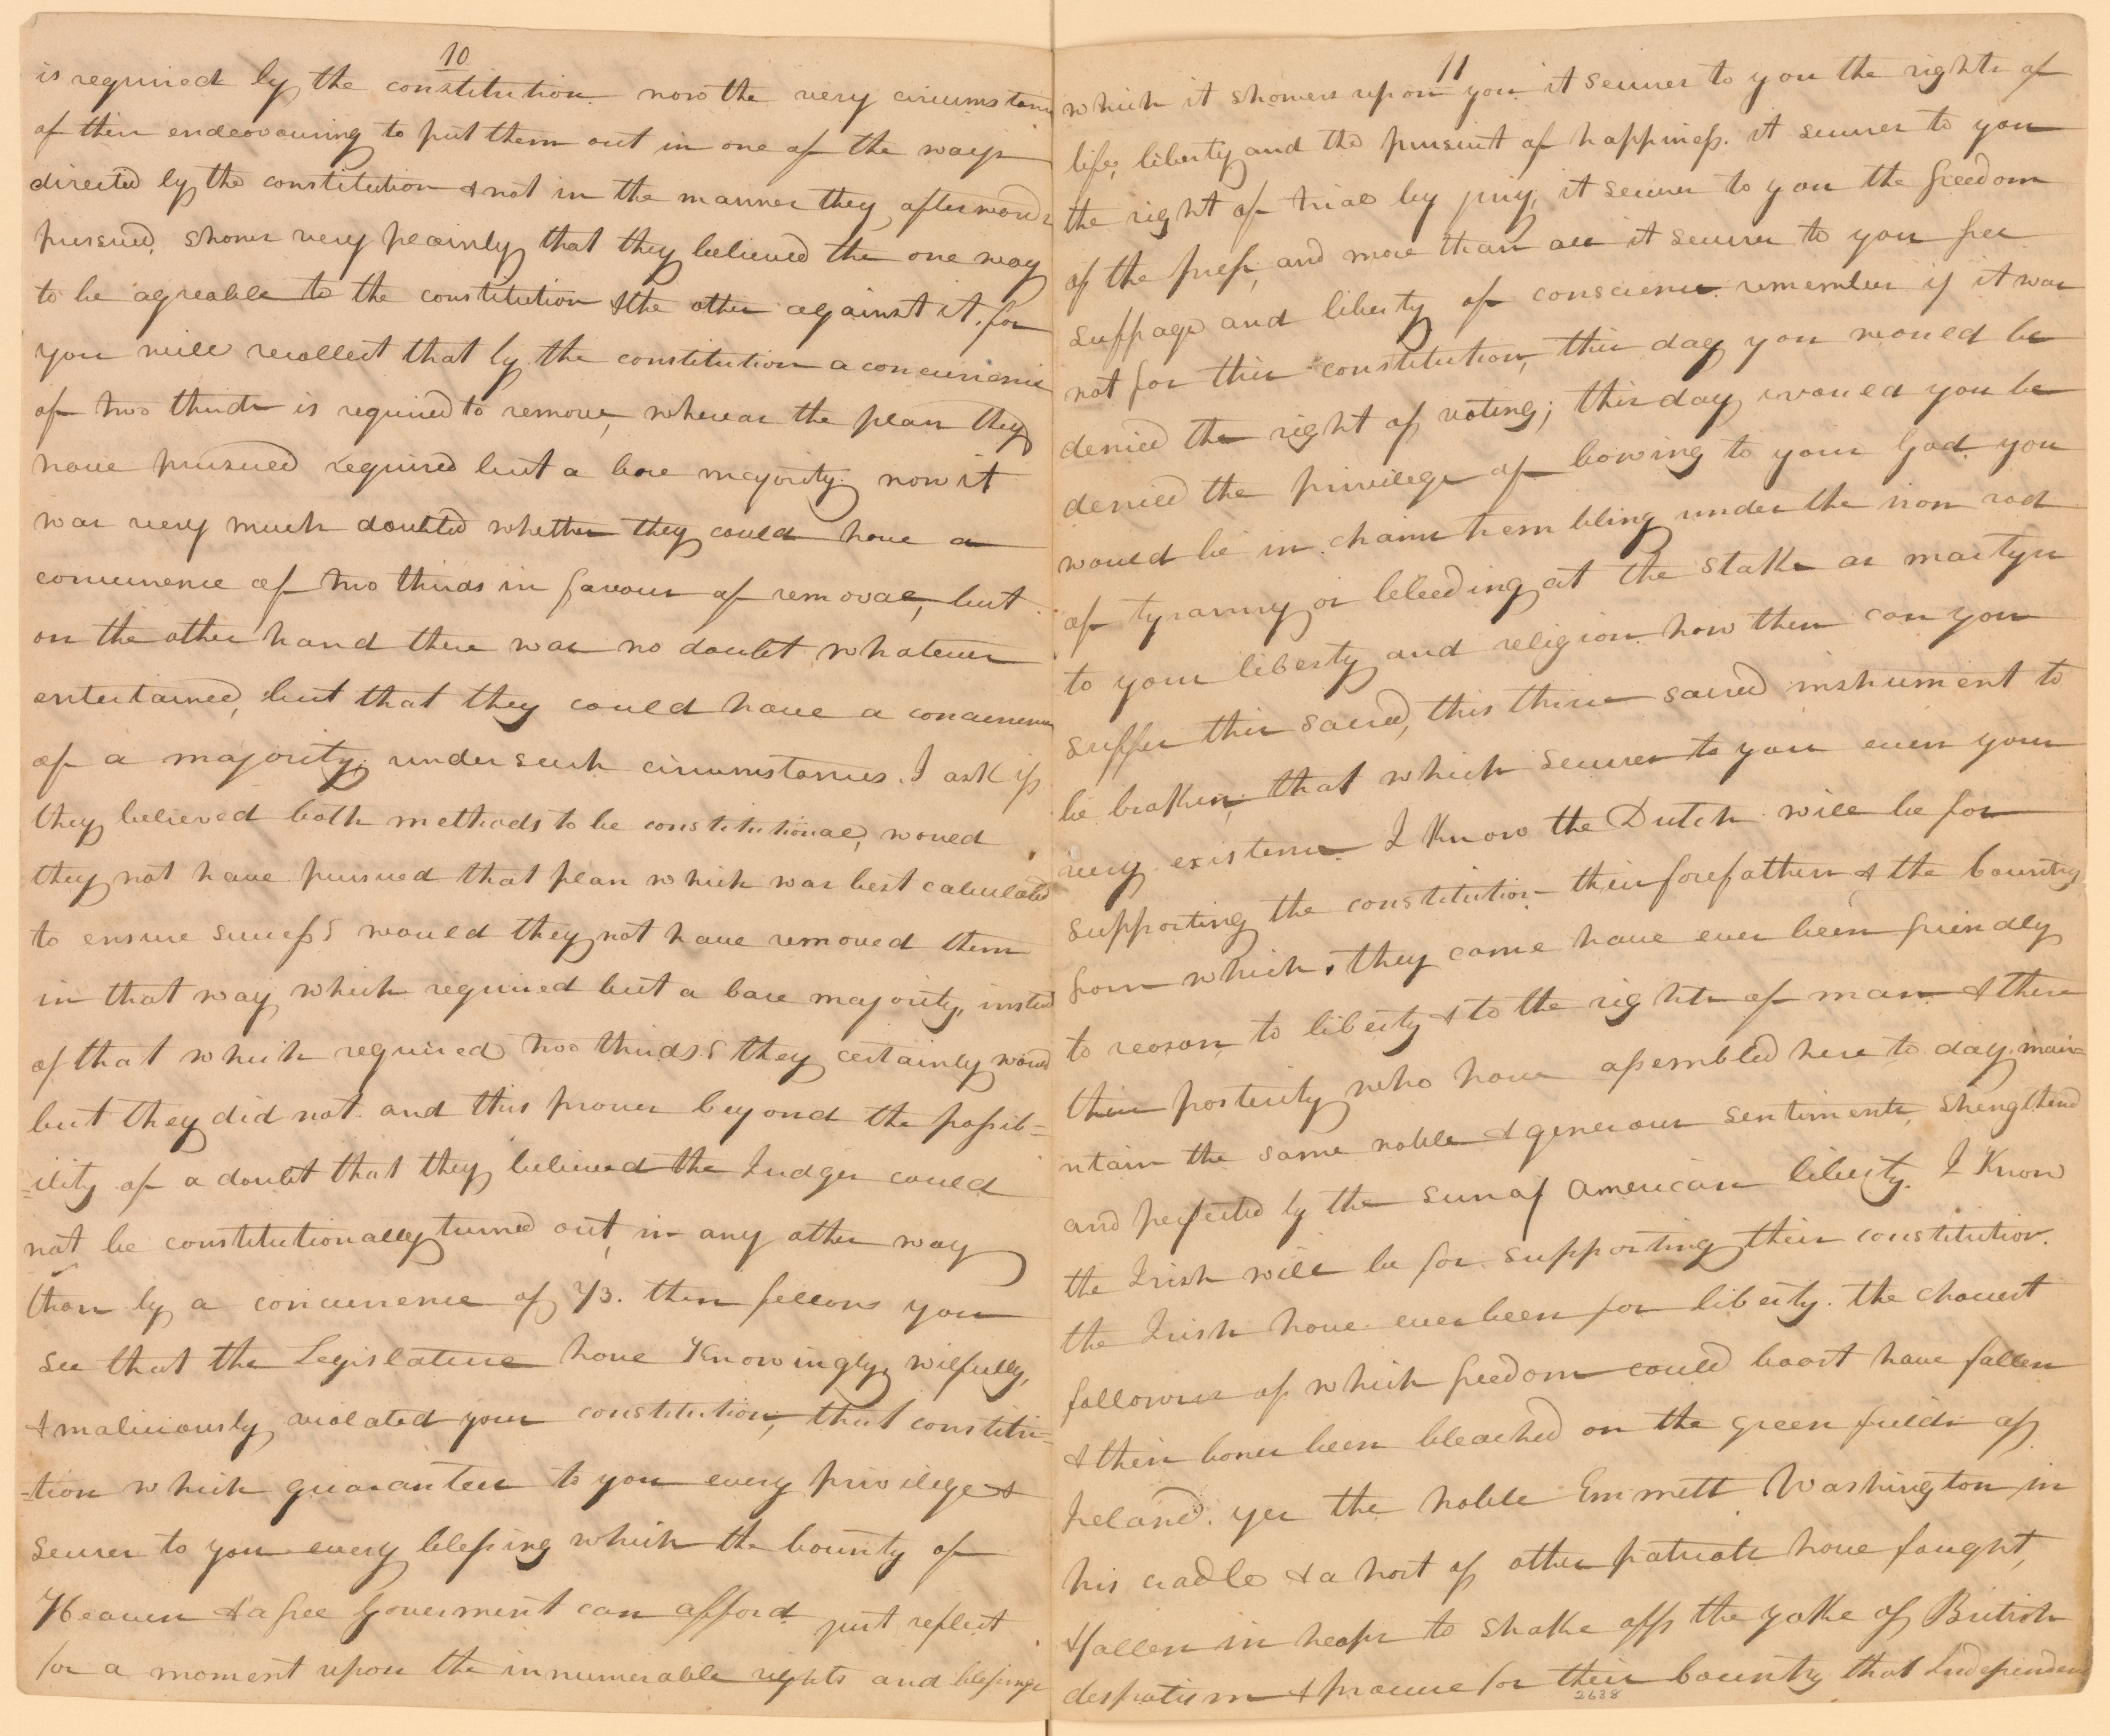 10
is required by the constitution. now the very circumstance
of their endeavouring to put them out in one of the ways
directed by the constitution & not in the manner they afterwards
pursued, shows very plainly that they believed the one way
to be agreable to the constitution & the other against it, for
you will recollect that by the constitution a concurrence
of two thirds is required to remove, whereas the plan they
have pursued required but a bare majority. now it
was very much doubted whether they could have a
concurrence of two thirds in favour of removal, but
on the other hand there was no doubt whatever
entertained, but that they could have a concurrence
of a majority, under such circumstances. I ask if
they believed both methods to be constitutional, would
they not have pursued that plan which was best calculated
to ensure success? would they not have removed them
in that way which required but a bare majority, instead
of that which required two thirds? they certainly would
but they did not. and this proves beyond the possib=
=ility of a doubt that they believed the Judges could
not be constitutionally turned out, in any other way
than by a concurrence of 2/3. then fellows you
see that the Legislature have knowingly, wilfully,
& maliciously, violated your constitution, that constitu=
=tion which guarantees to you every privilege &
secures to you every blessing which the bounty of
Heaven & a free government can afford. just reflect
for a moment upon the innumerable rights and blessings
11
which it showers upon you. it secures to you the rights of
life, liberty and the pursuit of happiness. it secures to you
the right of trial by jury, it secures to you the freedom
of the press, and more than all it secures to you free
suffrage and liberty of conscience. remember if it was
not for this constitution, this day you would be
denied the right of voting; this day would you be
denied the privilege of bowing to your God. you
would be in chains trembling under the iron rod
of tyranny or bleeding at the stake as martyrs
to your liberty and religion. how then can you
suffer this sacred, this thrice sacred instrument to
be broken, that which secures to you even your
very existence. I know the Dutch will be for
supporting the constitution. their forefathers & the Country
from which they came have ever been friendly
to reason, to liberty & to the rights of man. & these
their posterity who have assembled here to day, main=
ntain the same noble & generous sentiments, strengthend
and perfected by the sun of American liberty. I know
the Irish will be for supporting their constitution.
the Irish have ever been for liberty. the choicest
followers of which freedom could boast have fallen
& their bones been bleached on the green fields of
Ireland. yes the noble Emmett Washington in
his cradle & a host of other patriots have fought,
& fallen in heaps to shake off the yoke of British
despotism & procure for their Country that Independence
2638